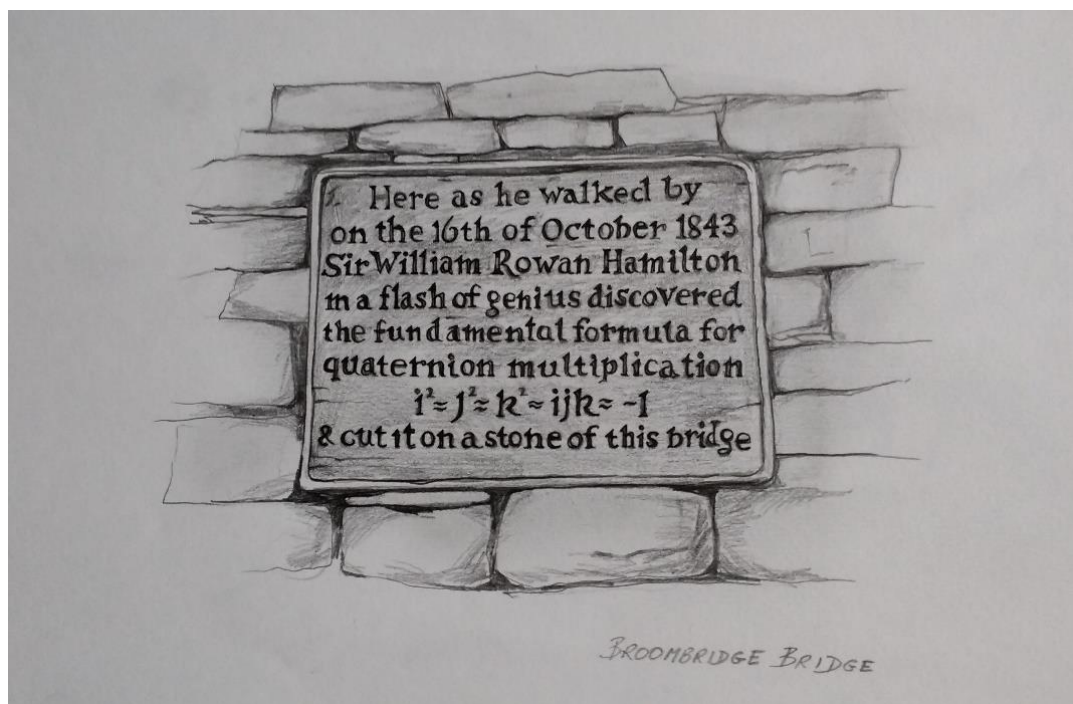 Here as he walked by
on the 16th of October 1843
Sir William Rowan Hamilton
in a flash of genius discovered
the fundamental formula for
quaternion multiplication
i² = j² = k² = ijk = -1
& cut it on a stone of this bridge
BROOMBRIDGE BRIDGE